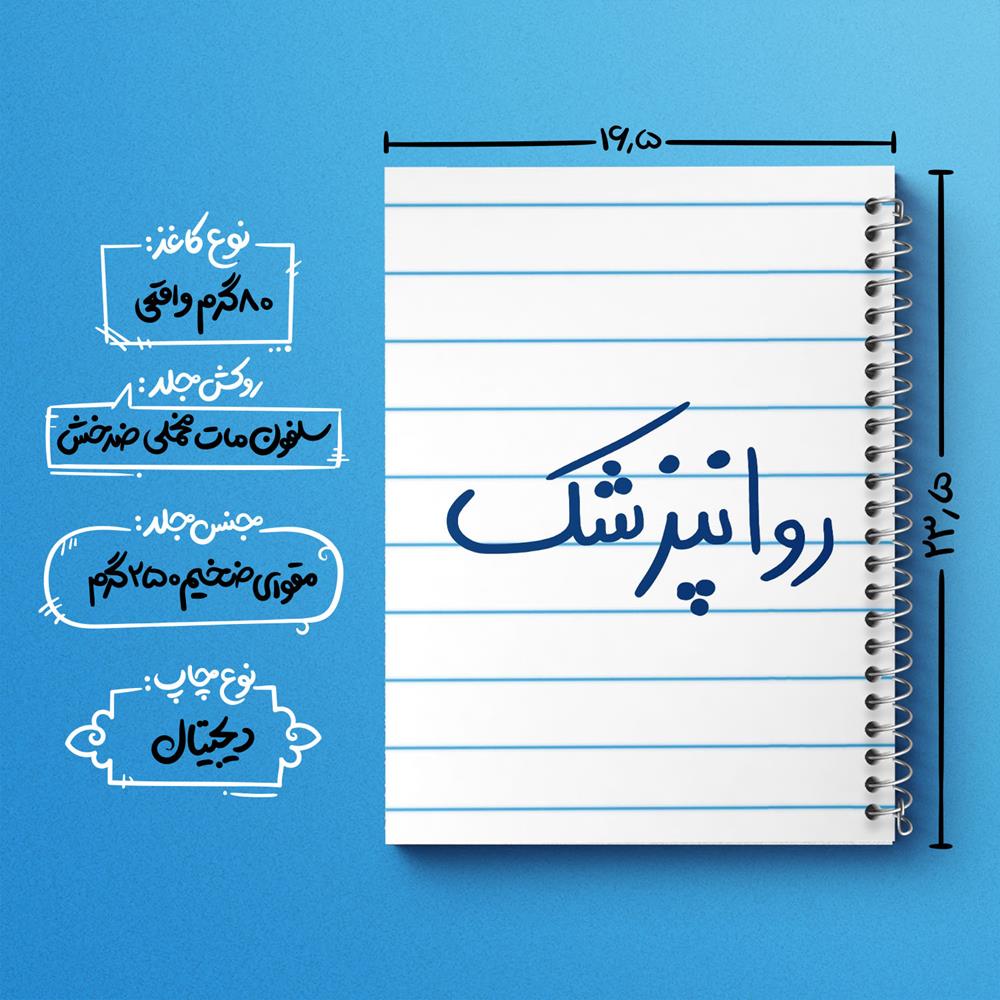 ۱۶٫۵
۲۳٫۵
روانپزشک
نوع کاغذ:
۸۰ گرم واقعی
روکش جلد:
سلفون مات مخملی ضدخش
جنس جلد:
مقوای ضخیم ۲۵۰ گرم
نوع چاپ:
دیجیتال